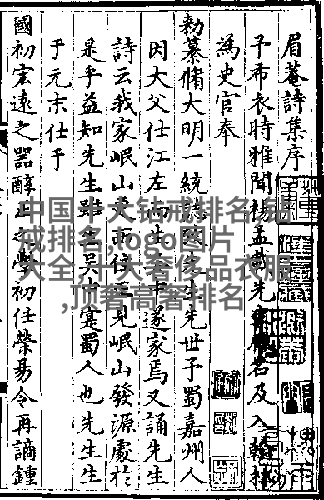 眉菴詩集序
予布衣時雅聞楊孟載先名及入翰林
為史官奉
勑纂脩大明一統誌先生先世予蜀嘉州人
因大父仕江左而生吳中遂家焉又誦先生
詩云我家岷山更西住正見岷山發源處於
是乎益知先生雖生吳中寔蜀人也先生生
于元末仕于
國初宏遠之器醇正之學初任榮昜令再謫鍾
中国十大钻戒排名,钻
戒排名,logo图片
大全,十大奢侈品衣服
,顶奢高奢排名